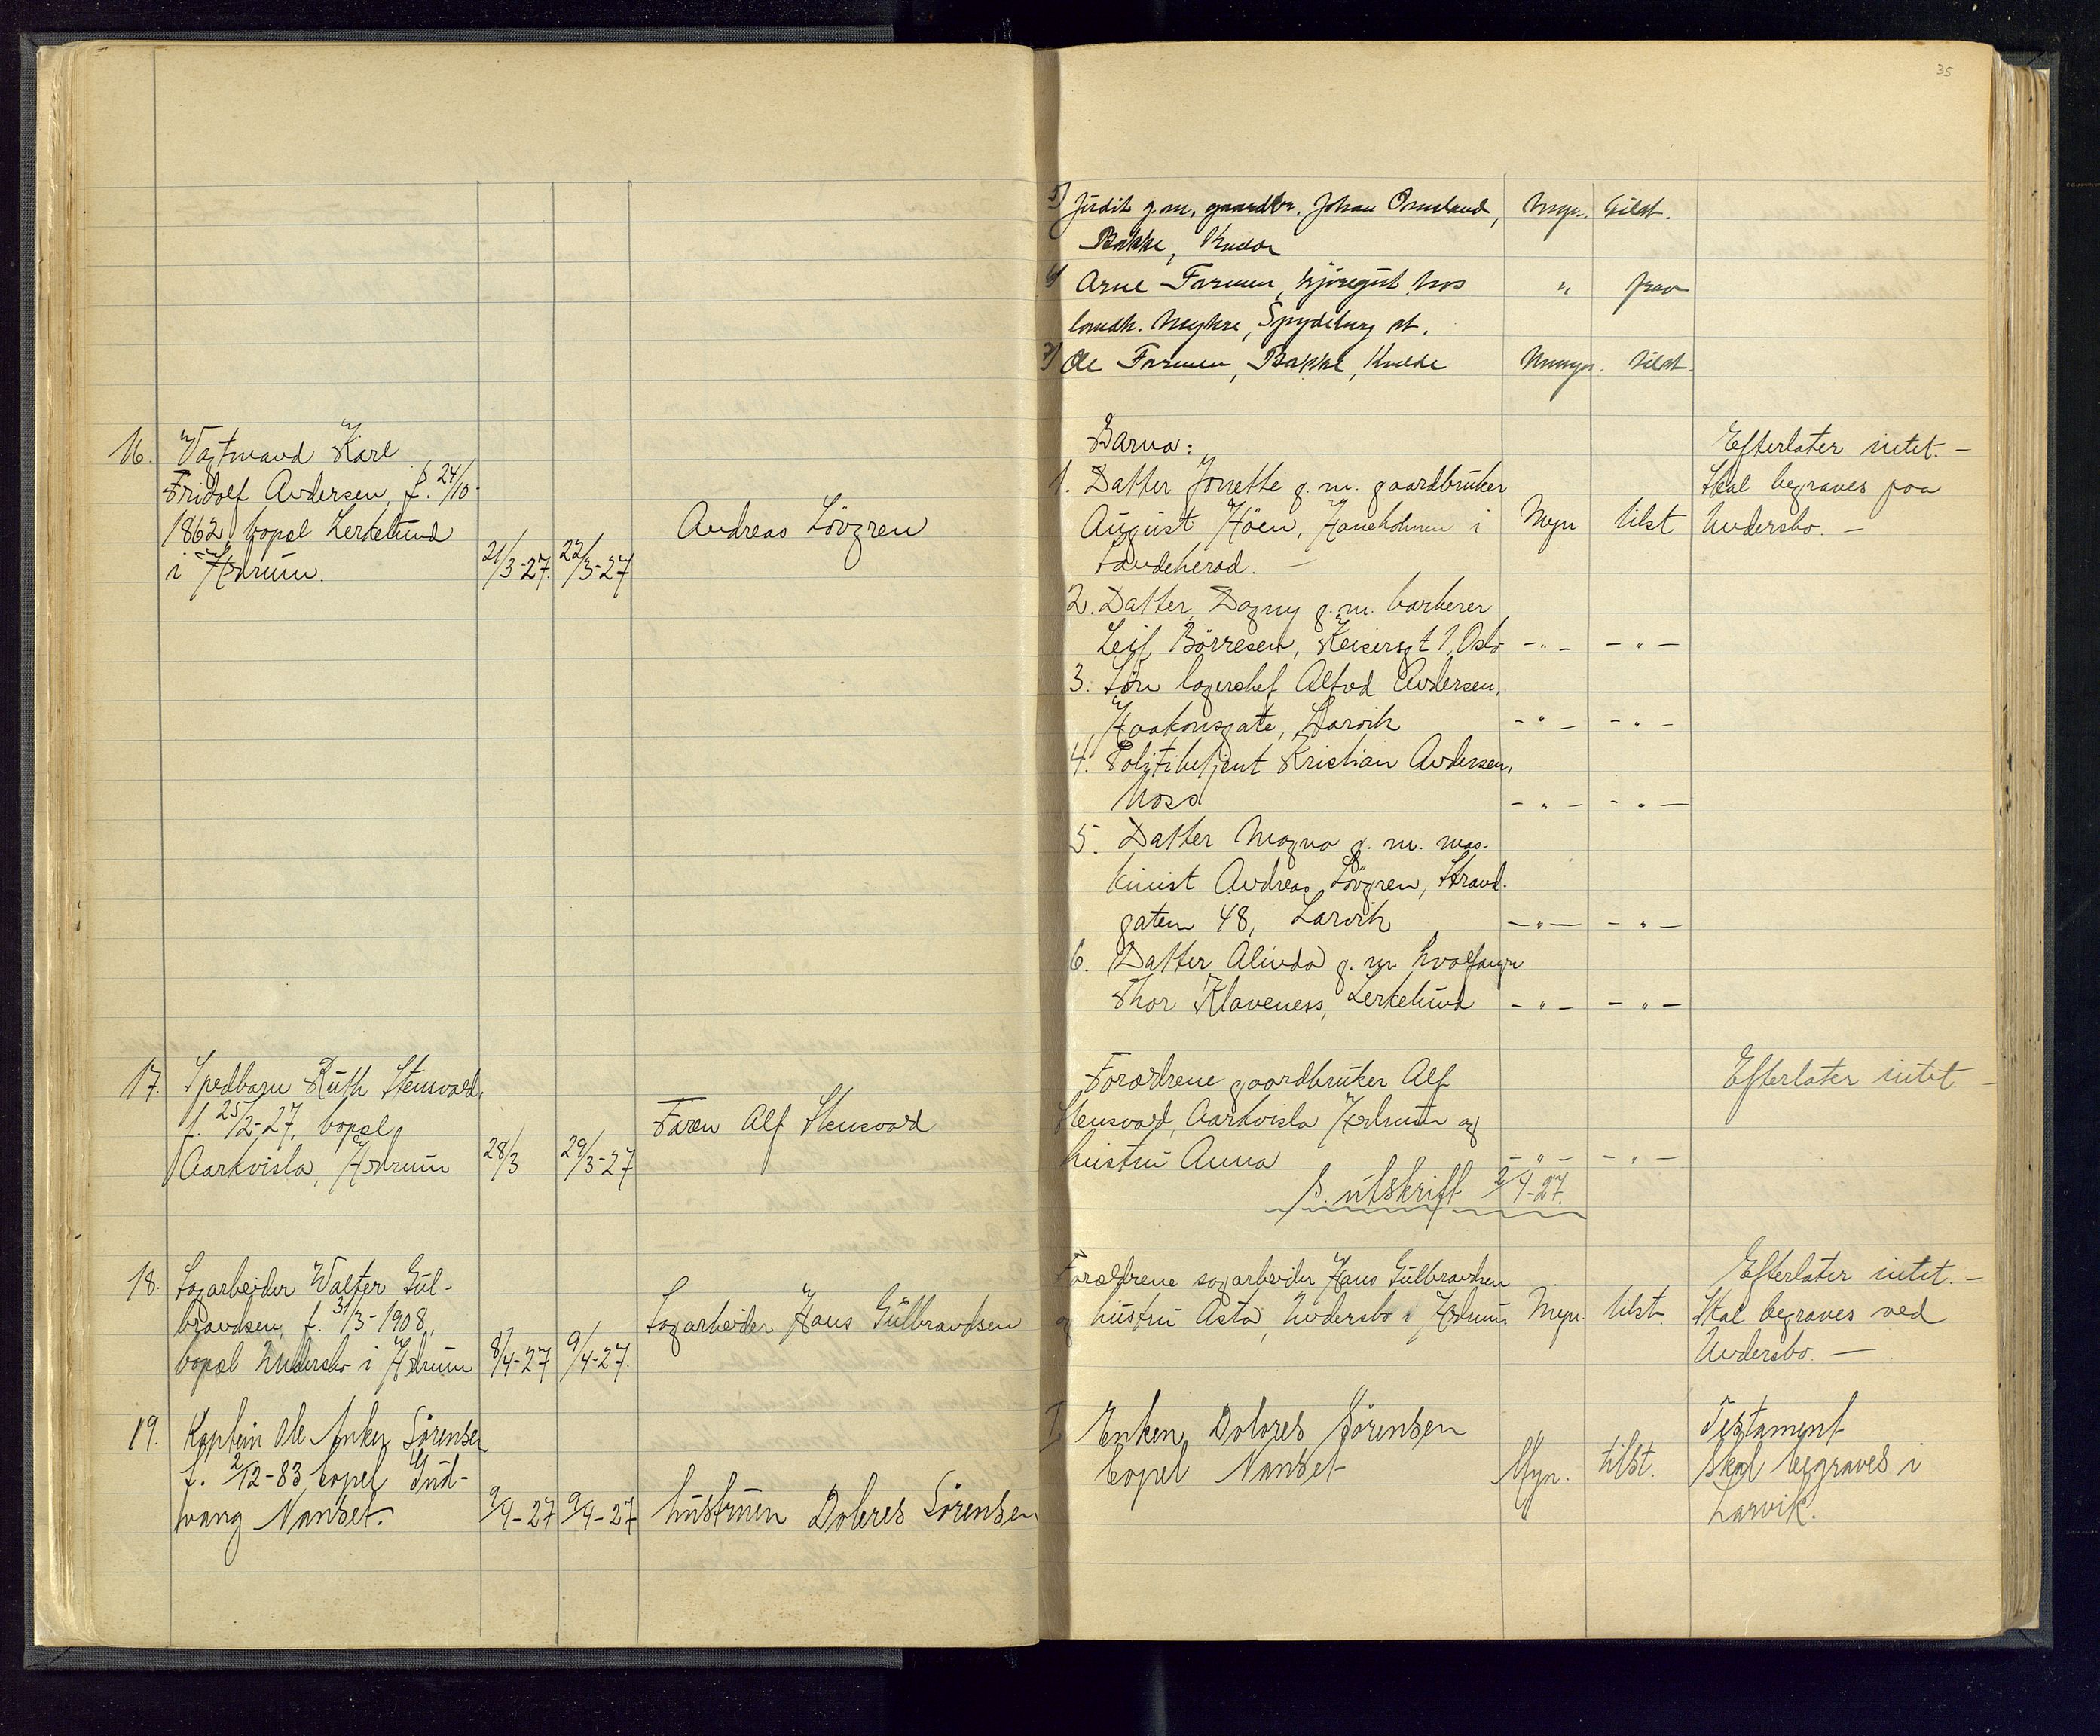 35
5) Judit g.m. gaardbr. Johan Omsland, Myn. tilst.
Bakke, Kvelde
6) Arne Farmen, hos " frav
lensdm. Myhre, Spydeberg st.
7) Ole Farmen, Bakke, Kvelde Umyn. tilst.
16. Vagtmand Karl
Fridolf Andersen, f. 24/10-
1862, bopæl Lerkelund
i Hedrum. 21/3-27. 22/3-27
Andreas Lövgren
Barna:
1. Datter Jonette g.m. gaardbruker
August Höen, Haneholmen i Myn tilst
Sandeherad. —
2. Datter Dagny g.m. barberer
Leif Börresen, Keisersgt 1, Oslo -"- -"-
3. Sön lagerchef Alfred Andersen,
Haakonsgate, Larvik -"- -"-
4. Politibetjent Kristian Andersen,
Moss -"- -"-
5. Datter Magna g.m. mas-
kinist Andreas Lövgren, Strand-
gaten 48, Larvik -"- -"-
6. Datter Alinda g.m. hvalfanger
Thor Klaveness, Lerkelund -"- -"-
Efterlater intet. —
Skal begraves paa
Undersbo. —
17. Spedbarn Ruth Stensvold,
f. 25/2-27, bopæl
Aarkvisla, Hedrum 28/3 29/3-27
Faren Alf Stensvold
Forældrene gaardbruker Alf
Stensvold, Aarkvisla Hedrum og
hustru Anna -"- -"-
S. utskrift 2/4-27.
Efterlater intet —
18. Sagarbeider Walter Gul-
brandsen, f. 31/3-1908,
bopæl Undersbo i Hedrum 8/4-27 9/4-27.
Sagarbeider Hans Gulbrandsen
Forældrene sagarbeider Hans Gulbrandsen
og hustru Asta, Undersbo i Hedrum Myn. tilst.
Efterlater intet. —
Skal begraves ved
Undersbo. —
19. Kaptein Ole Anker Sörensen
f. 2/12-83 bopel Gud-
vang Nanset. 9/4-27 9/4-27 hustruen Dolores Sörensen
I Enken Dolores Sörensen
bopel Nanset Myn. tilst.
Testament
skal begraves i
Larvik.